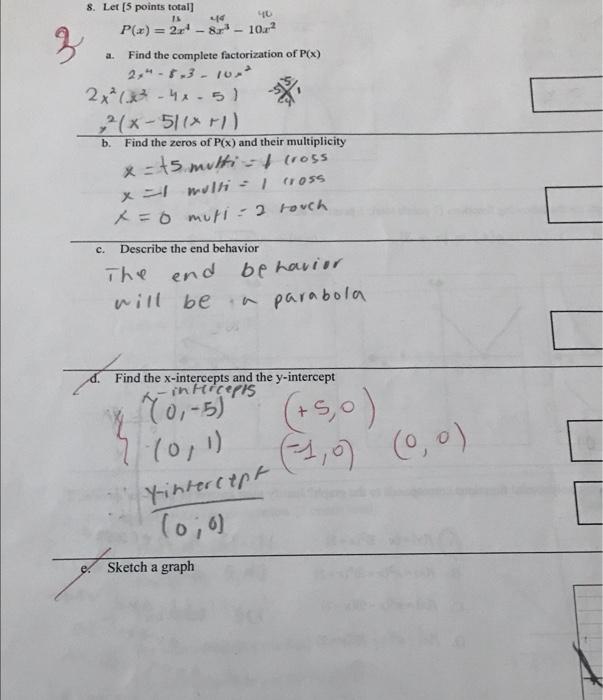 8. Let [5 points total]
P(x) = 2x⁴ − 8x³ − 10x²
3
a. Find the complete factorization of P(x)
2x⁴ - 8x³ - 10x²
2x²(x² - 4x - 5)
x²(x - 5)(x + 1)
b. Find the zeros of P(x) and their multiplicity
x = +5 multi = 1 cross
x = -1 multi = 1 cross
x = 0 muti = 2 touch
c. Describe the end behavior
The end behavior
will be a parabola
d. Find the x-intercepts and the y-intercept
x-intercepts
(0, -5) (+5, 0)
(0, 1) (-1, 0) (0, 0)
y-intercept
(0, 0)
e. Sketch a graph